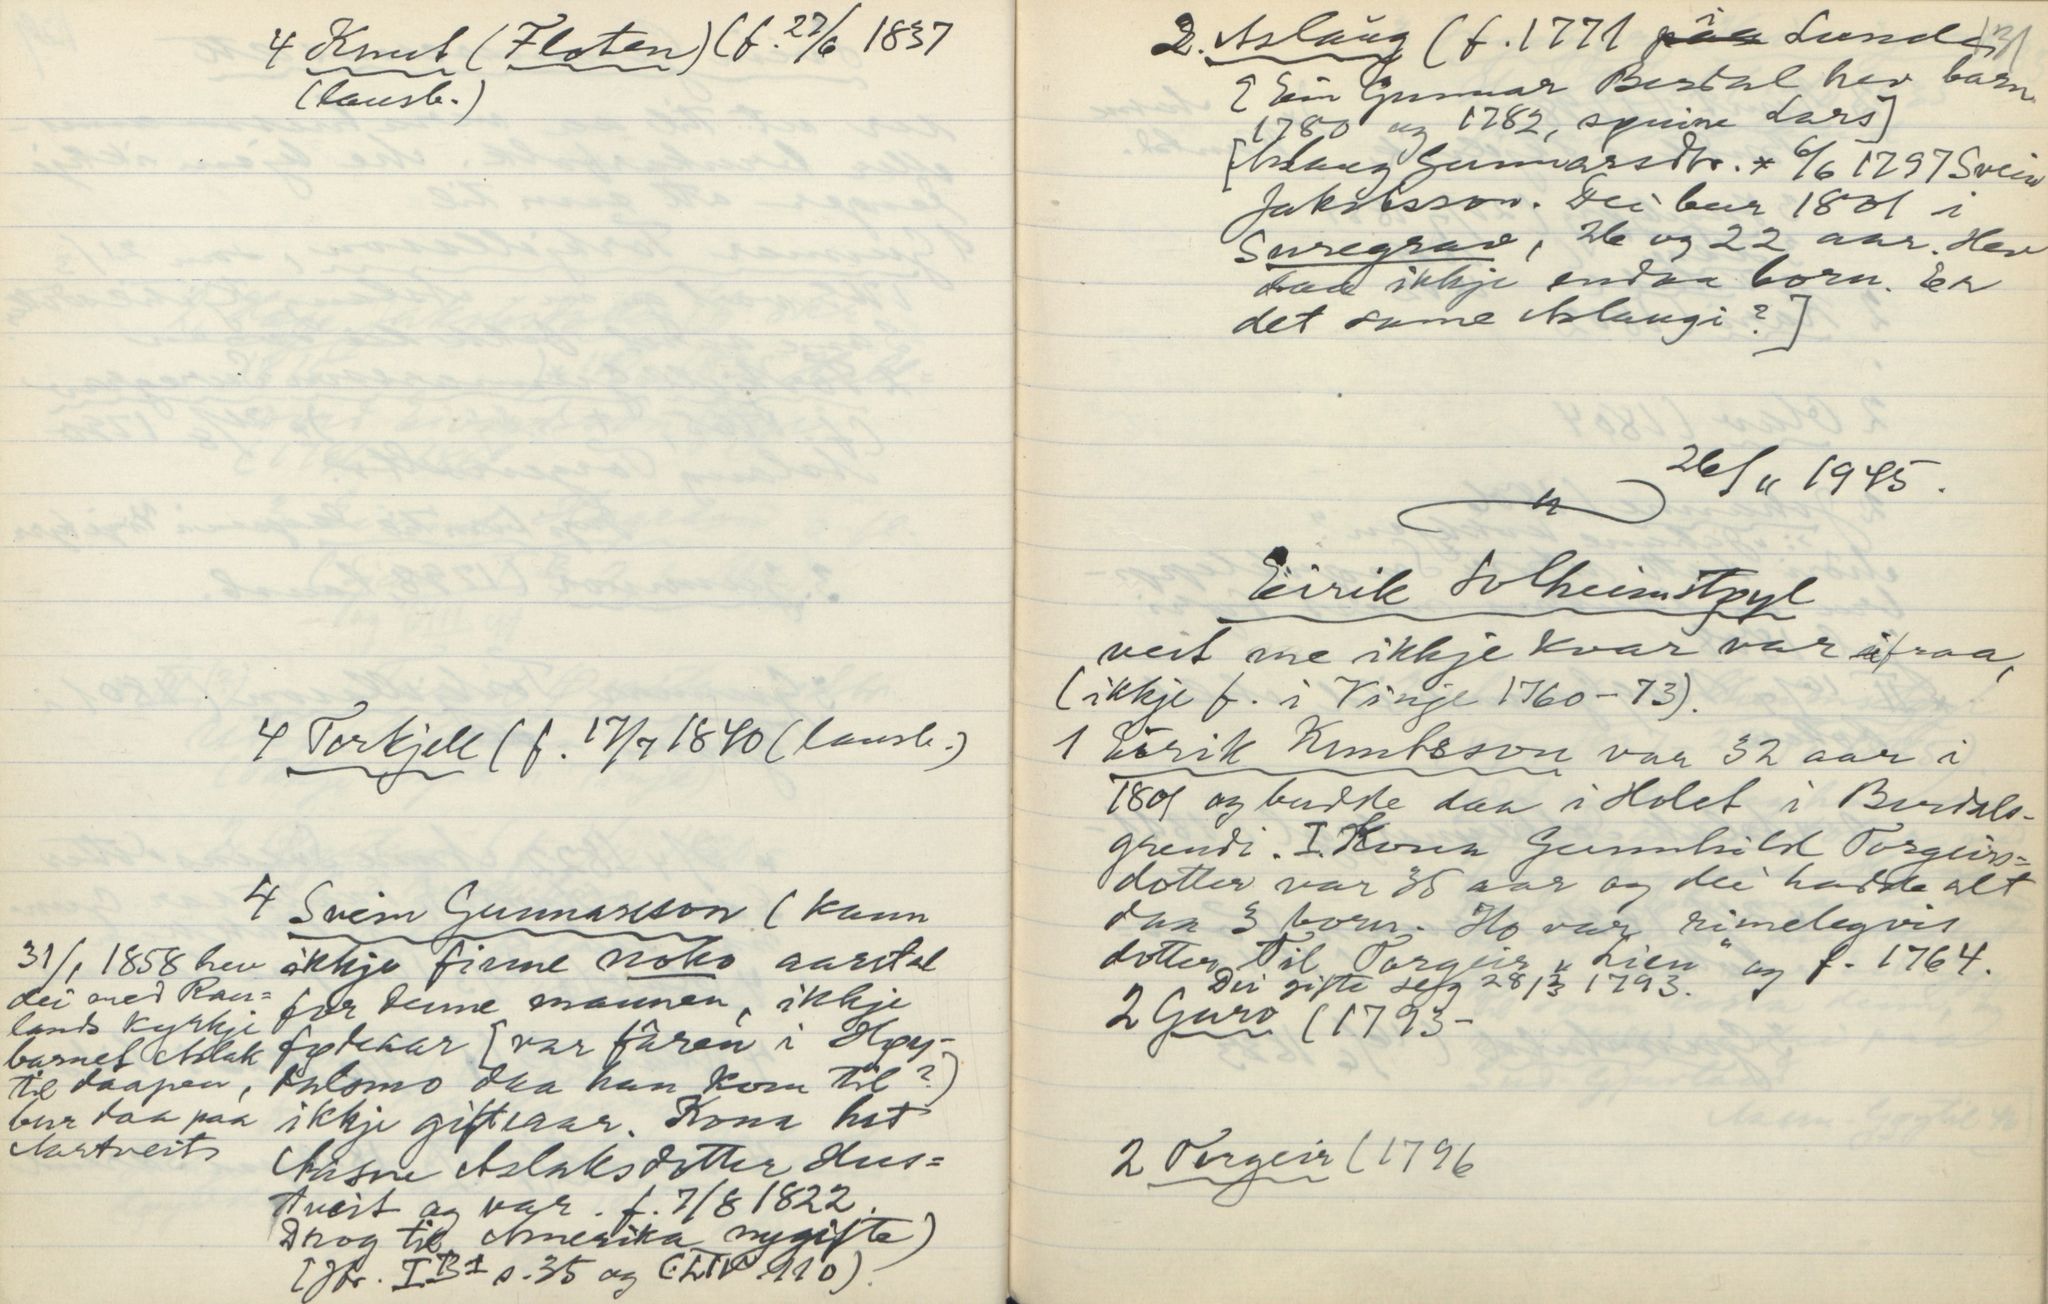 4 Knut (Floten) (f. 27/6 1837
(lausk.)
4 Torkjell (f. 17/7 1840 (lausk.)
4 Svein Gunnarsson (kann
ikkje finne noko aarstal
for denne mannen, ikkje
fødeaar [var fåren i Høy-
dalsmo daa han kom til?)
ikkje gifteaar. Kona het
Aasne Aslaksdotter Hus=
tveit og var f. 7/8 1822.
Drog til Amerika nygifte)
(Jfr. I B1 s. 35 og 110).
31/1 1858 hev
dei med Rau=
lands Kyrkje
barnet Aslak
til daapen,
bur daa paa
Aartveit
2. Aslaug (f. 1771 paa i Lunde
[Ein Gunnar Berdal hev barn
1780 og 1782, synine Lars]
[Aslaug Gunnarsdtr. * 6/6 1797 Svein
Jakobsson. Dei bur 1801 i
Suregrav, 26 og 22 aar. Hev
daa ikkje endaa born. Er
det same Aslaugi?]
26/11 1945.
Eirik Solheimstøyl
veit me ikkje kvar var ifraa,
(ikkje f. i Vinje 1760-73).
1 Eirik Knutsson var 32 aar i
1801 og budde daa i Holet i Berdals-
grendi. I. Kona Gunnhild Torgeirs=
dotter var 35 aar og dei hadde alt
daa 3 born. Ho var rimelegvis
dotter til Torgeir "Lien" og f. 1764.
Dei gifte seg 28/3 1793.
2 Guro (1793-
2 Torgeir (1796